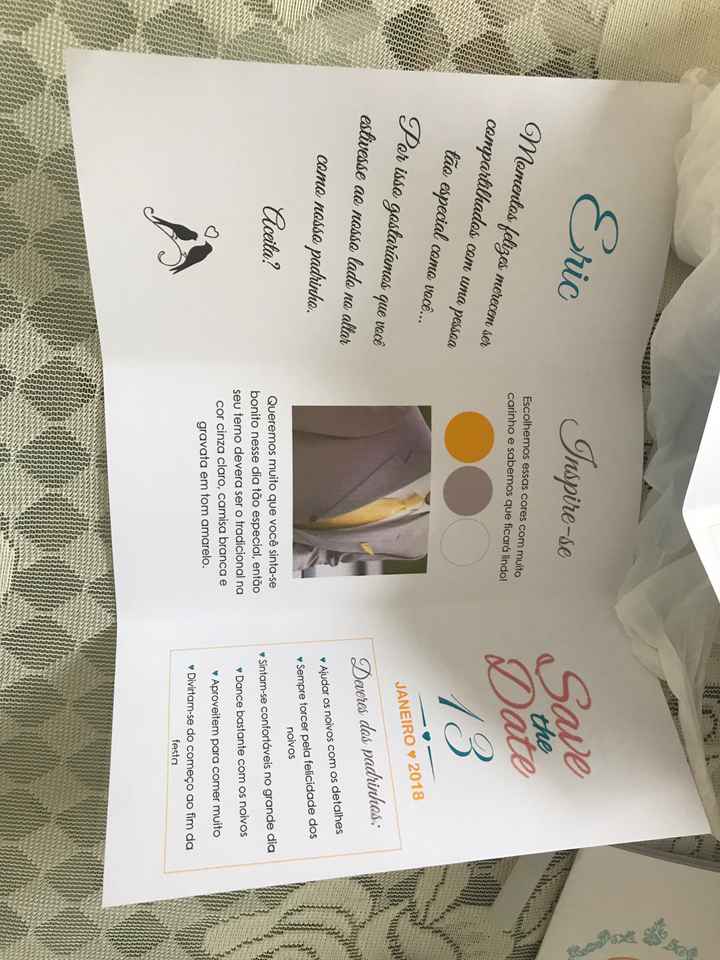 Eric
Momentos felizes merecem ser
compartilhados com uma pessoa
tão especial como você...
Por isso gostaríamos que você
estivesse ao nosso lado no altar
como nosso padrinho.
Aceita?
Inspire-se
Escolhemos essas cores com muito
carinho e sabemos que ficará lindo!
Queremos muito que você sinta-se
bonito nesse dia tão especial, então
seu terno devera ser o tradicional na
cor cinza claro, camisa branca e
gravata em tom amarelo.
Save
the
Date
13
JANEIRO ♥ 2018
Deveres dos padrinhos:
♥ Ajudar os noivos com os detalhes
♥ Sempre torcer pela felicidade dos
noivos
♥ Sintam-se confortáveis no grande dia
♥ Dance bastante com os noivos
♥ Aproveitem para comer muito
♥ Divirtam-se do começo ao fim da
festa